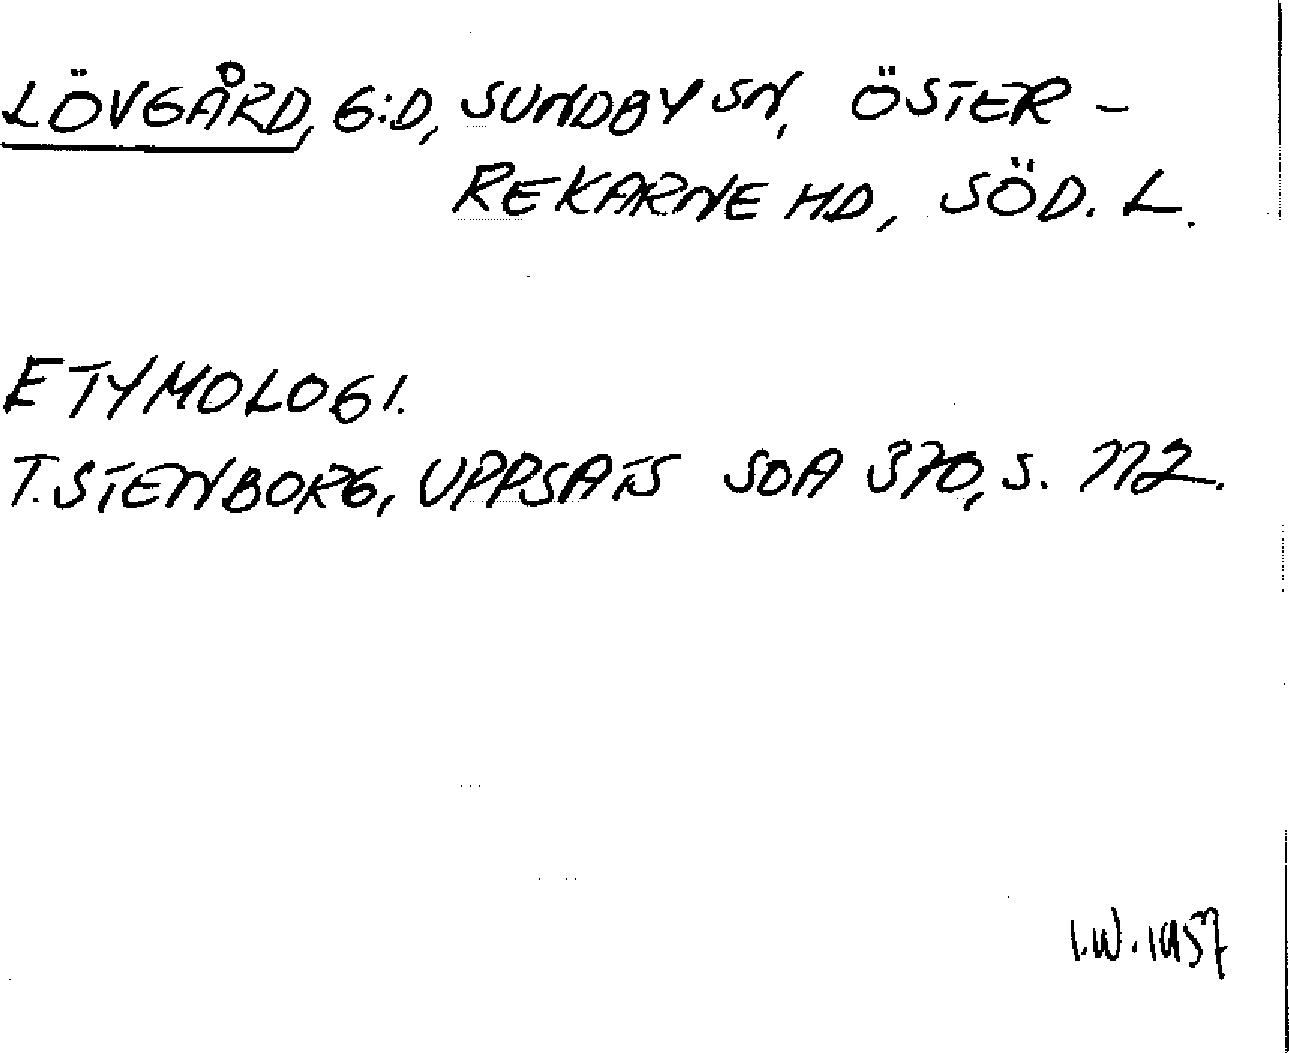 LÖVGÅRD, G:D, SUNDBY SN, ÖSTER-
REKARNE HD, SÖD. L.
ETYMOLOGI.
T. STENBORG, UPPSATS SOA 370, S. 112.
I.W. 1957